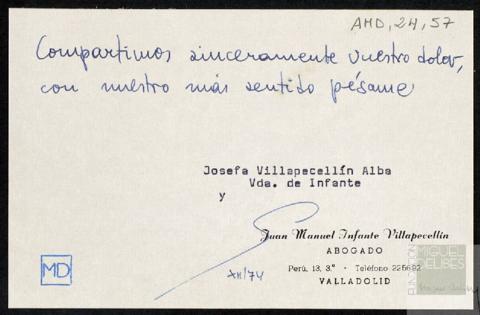 AMD, 24, 57
Compartimos sinceramente vuestro dolor,
con nuestro más sentido pésame
Josefa Villapecellín Alba
Vda. de Infante
y
Juan Manuel Infante Villapecellín
ABOGADO
Perú, 13, 3.° - Teléfono 225692
VALLADOLID
MD
XII/74
FUNDACIÓN
MIGUEL
DELIBES